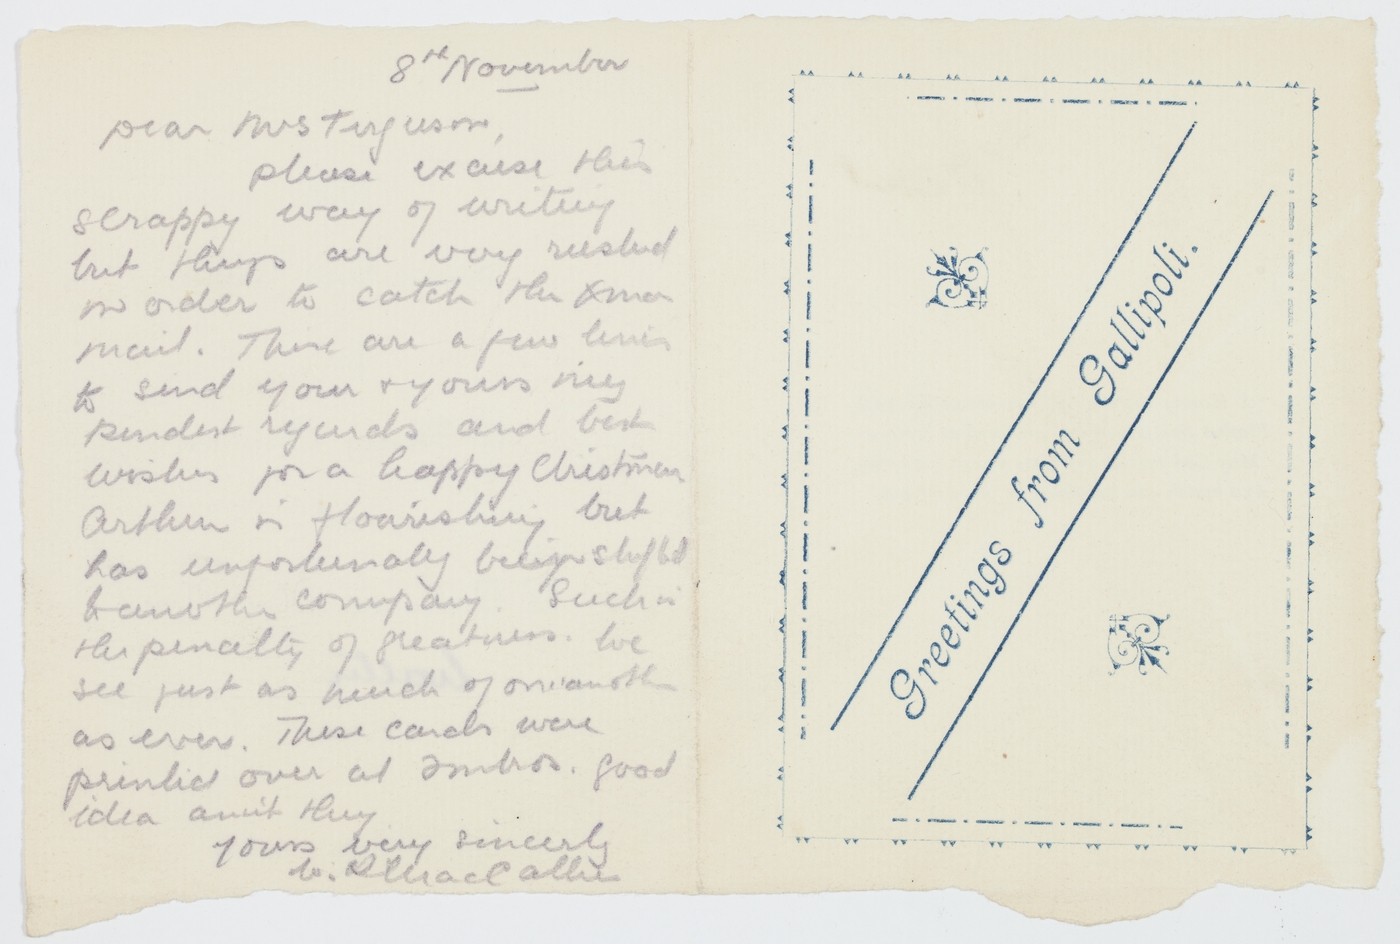 8th November
Dear Mrs Ferguson,
please excuse this
scrappy way of writing
but things are very rushed
in order to catch the Xmas
mail. These are a few lines
to send your & yours my
kindest regards and best
wishes for a happy Christmas
Arthur is flourishing but
has unfortunately being shifted
to another company. Such is
the penalty of greatness. We
see just as much of one another
as ever. These cards were
printed over at Imbros. good
idea aint they
yours very sincerly
Greetings from Gallipoli.